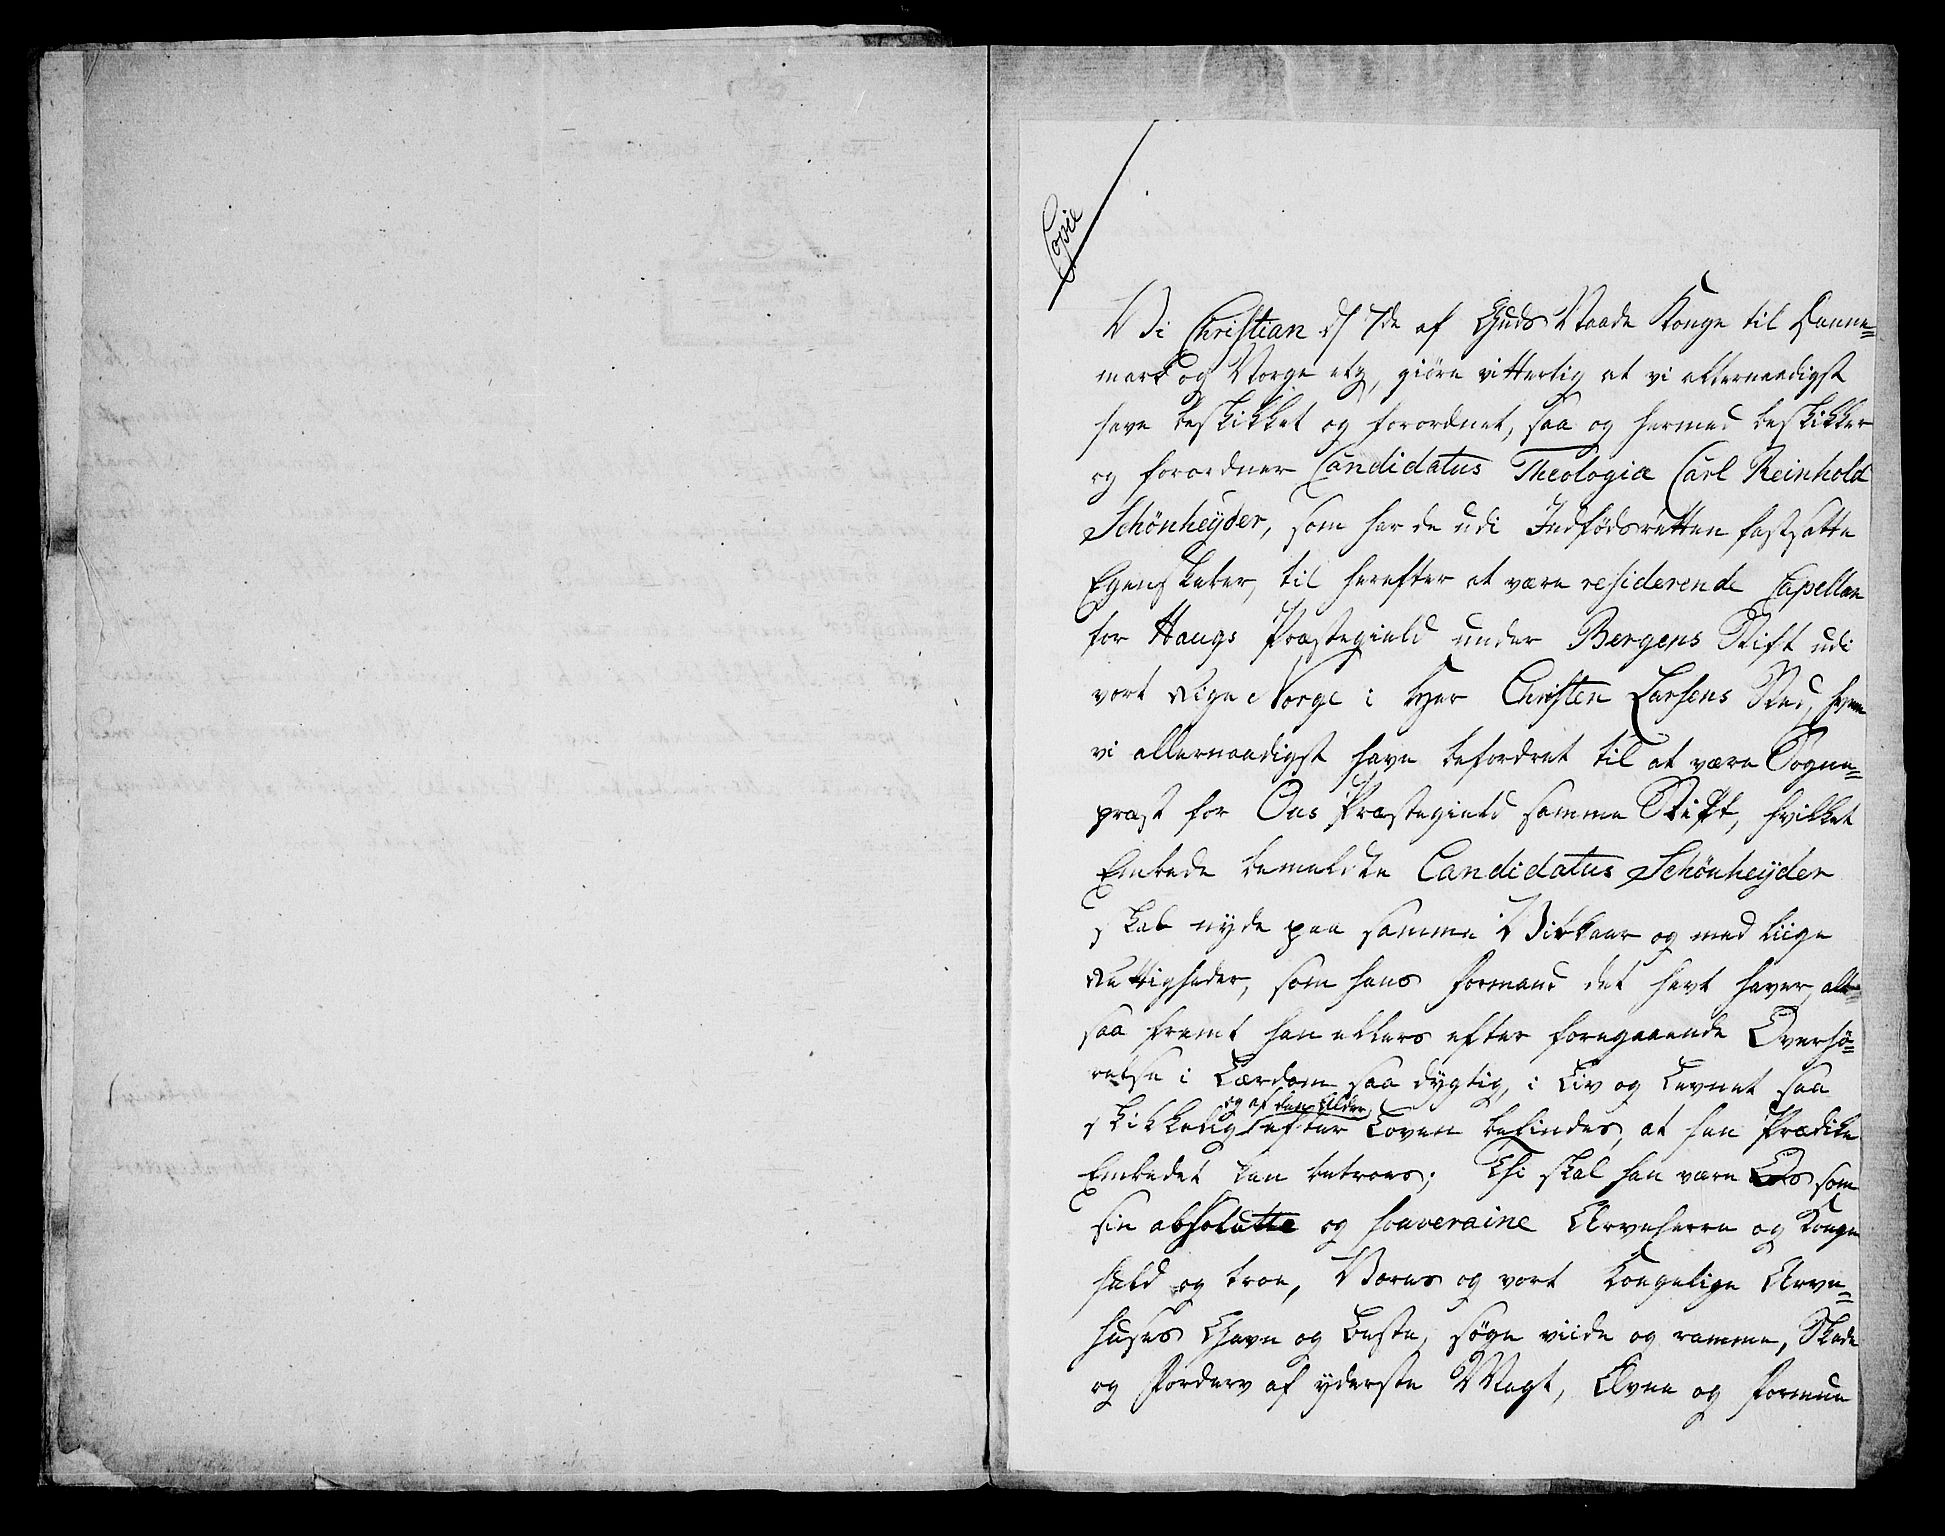 Copie
Vi Christian d 7de af Guds Naade Konge til Danne=
mark og Norge etc, giøre vitterlig at vi allernaadigst
have beskikket og forordnet, saa og hermed beskikker
og forordner Candidatus Theologiæ Carl Reinhold
Schönheÿder, som har de udi Indfødsretten fastsatte
Egenskaber, til herefter at være residerende Capellan
for Haugs Præstegield under Bergens Stift udi
vort Rige Norge i Hr Christen Larsens Sted, hvem
vi allernaadigst have befordret til at være Sogne=
præst for Ous Præstegield samme Stift, hvilket
Embede bemeldte Candidatus Schönheÿder
skal nyde paa samme Vilkaar og med liige
Rettigheder, som hans Formand det havt haver, alt
saa fremt han ellers efter foregaaende Overhø=
relse i Lærdom saa dygtig, i Liv og Levnet saa
og af den Alder
skikkelig efter Loven befindes, at han Prædike
Embedet kan betroes; Thi skal han være Os som
sin absolutte og souveraine Arveherre og Konge
huld og troe, Vores og vort Kongelige Arve=
huses Gavn og Beste, søge viide og ramme, Skade
og Forderv af yderste Magt, Evne og Formue